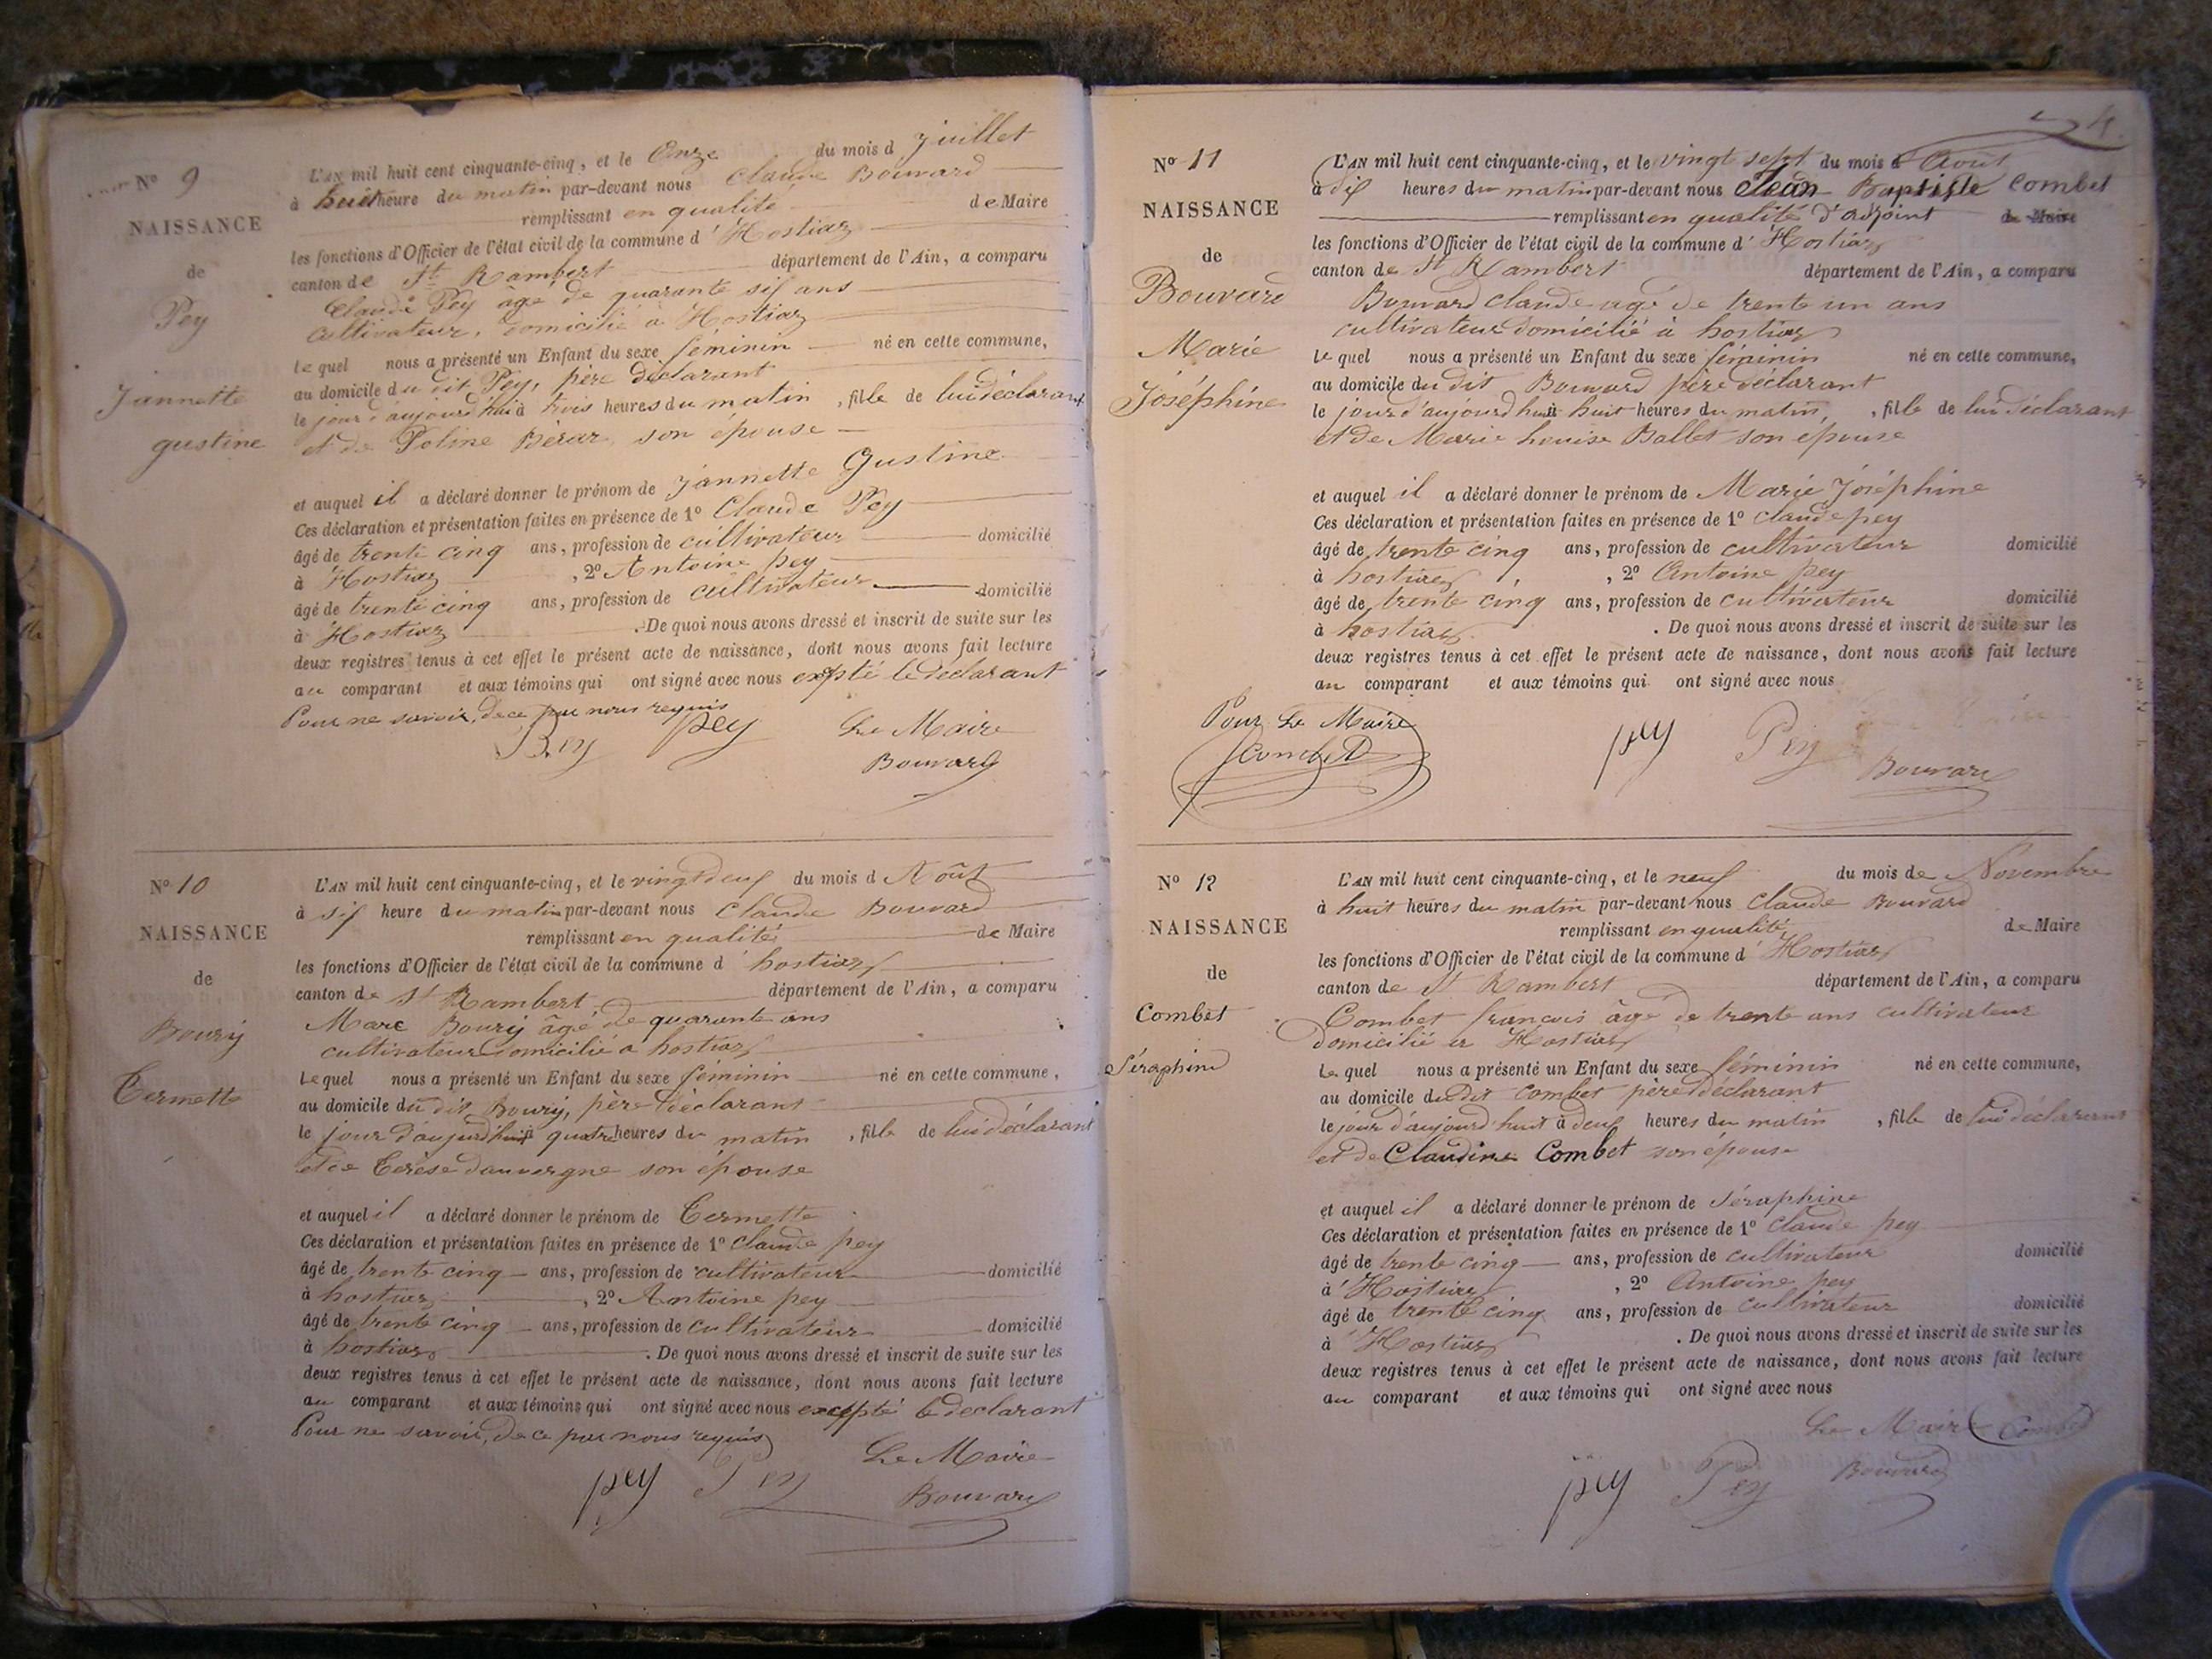 N° 9
NAISSANCE
de
Pey
Jannette
gustine
L'AN mil huit cent cinquante-cinq, et le Onze du mois d Juillet
à huit heure du matin par-devant nous Claude Bouvard
remplissant en qualité de Maire
les fonctions d'Officier de l'état civil de la commune d' Hostiaz
canton de St Rambert département de l'Ain, a comparu
Claude Pey âgé de quarante six ans
cultivateur, domicilié à Hostiaz
Le quel nous a présenté un Enfant du sexe féminin né en cette commune,
au domicile du dit Pey, père déclarant
le jour d'aujourd'hui à trois heures du matin, fille de lui déclarant
et de Poline Bérar, son épouse
et auquel il a déclaré donner le prénom de Jannette Gustine
Ces déclaration et présentation faites en présence de 1° Claude Pey
âgé de trente cinq ans, profession de cultivateur domicilié
à Hostiaz, 2° Antoine pey
âgé de trente cinq ans, profession de cultivateur domicilié
à Hostiaz. De quoi nous avons dressé et inscrit de suite sur les
deux registres tenus à cet effet le présent acte de naissance, dont nous avons fait lecture
au comparant et aux témoins qui ont signé avec nous expté le déclarant
Pour ne savoir, de ce par nous requis
Pey pey Le Maire
Bouvard
N° 10
NAISSANCE
de
Boury
Termette
L'AN mil huit cent cinquante-cinq, et le vingt deux du mois d Août
à six heure du matin par-devant nous Claude Bouvard
remplissant en qualité de Maire
les fonctions d'Officier de l'état civil de la commune d hostiaz
canton de St Rambert département de l'Ain, a comparu
Marc Boury âgé de quarante ans
cultivateur domicilié à hostiaz
Le quel nous a présenté un Enfant du sexe féminin né en cette commune,
au domicile du dit Boury, père déclarant
le jour d'aujourd'hui à quatre heures du matin, fille de lui déclarant
et de Terèse dauvergne son épouse
et auquel il a déclaré donner le prénom de Termette
Ces déclaration et présentation faites en présence de 1° Claude pey
âgé de trente cinq ans, profession de cultivateur domicilié
à hostiaz, 2° Antoine pey
âgé de trente cinq ans, profession de cultivateur domicilié
à hostiaz. De quoi nous avons dressé et inscrit de suite sur les
deux registres tenus à cet effet le présent acte de naissance, dont nous avons fait lecture
au comparant et aux témoins qui ont signé avec nous excepté le declarant
Pour ne savoir, de ce par nous requis
pey Pey Le Maire
Bouvard
4
N° 11
NAISSANCE
de
Bouvard
Marie
Joséphine
L'AN mil huit cent cinquante-cinq, et le vingt sept du mois d Août
à dix heures du matin par-devant nous Jean Baptiste Combet
remplissant en qualité d'adjoint de Maire
les fonctions d'Officier de l'état civil de la commune d' Hostiaz
canton de St Rambert département de l'Ain, a comparu
Bouvard claude agé de trente un ans
cultivateur domicilié à hostiaz
Le quel nous a présenté un Enfant du sexe féminin né en cette commune,
au domicile du dit Bouvard père déclarant
le jour d'aujourd'hui à huit heures du matin, fille de lui déclarant
et de Marie Louise Ballet son épouse
et auquel il a déclaré donner le prénom de Marie Joséphine
Ces déclaration et présentation faites en présence de 1° Claude pey
âgé de trente cinq ans, profession de cultivateur domicilié
à hostiaz, 2° Antoine pey
âgé de trente cinq ans, profession de cultivateur domicilié
à hostiaz. De quoi nous avons dressé et inscrit de suite sur les
deux registres tenus à cet effet le présent acte de naissance, dont nous avons fait lecture
au comparant et aux témoins qui ont signé avec nous
Pour Le Maire
Combet pey Pey Bouvard
N° 12
NAISSANCE
de
Combet
Séraphine
L'AN mil huit cent cinquante-cinq, et le neuf du mois de Novembre
à huit heures du matin par-devant nous Claude Bouvard
remplissant en qualité de Maire
les fonctions d'Officier de l'état civil de la commune d' Hostiaz
canton de St Rambert département de l'Ain, a comparu
Combet françois âgé de trente ans cultivateur
domicilié à Hostiaz
Le quel nous a présenté un Enfant du sexe féminin né en cette commune,
au domicile du dit combet père déclarant
le jour d'aujourd'huit à deux heures du matin, fille de lui déclarant
et de Claudine Combet son épouse
et auquel il a déclaré donner le prénom de Séraphine
Ces déclaration et présentation faites en présence de 1° Claude pey
âgé de trente cinq ans, profession de cultivateur domicilié
à Hostiaz, 2° Antoine pey
âgé de trente cinq ans, profession de cultivateur domicilié
à Hostiaz. De quoi nous avons dressé et inscrit de suite sur les
deux registres tenus à cet effet le présent acte de naissance, dont nous avons fait lecture
au comparant et aux témoins qui ont signé avec nous
Le Maire Combet
pey Pey Bouvard